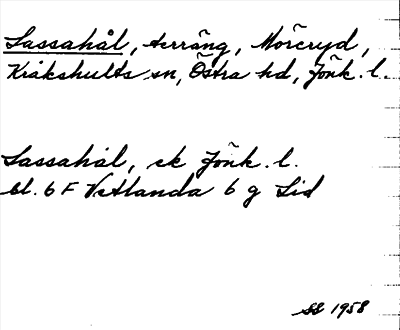 Lassahål, terräng, Morēryd,
Kråkshults sn, Östra hd, Jönk. l.
Lassahål, ek Jönk. l.
bl. 6 F Vetlanda 6 g Sid
SS 1958